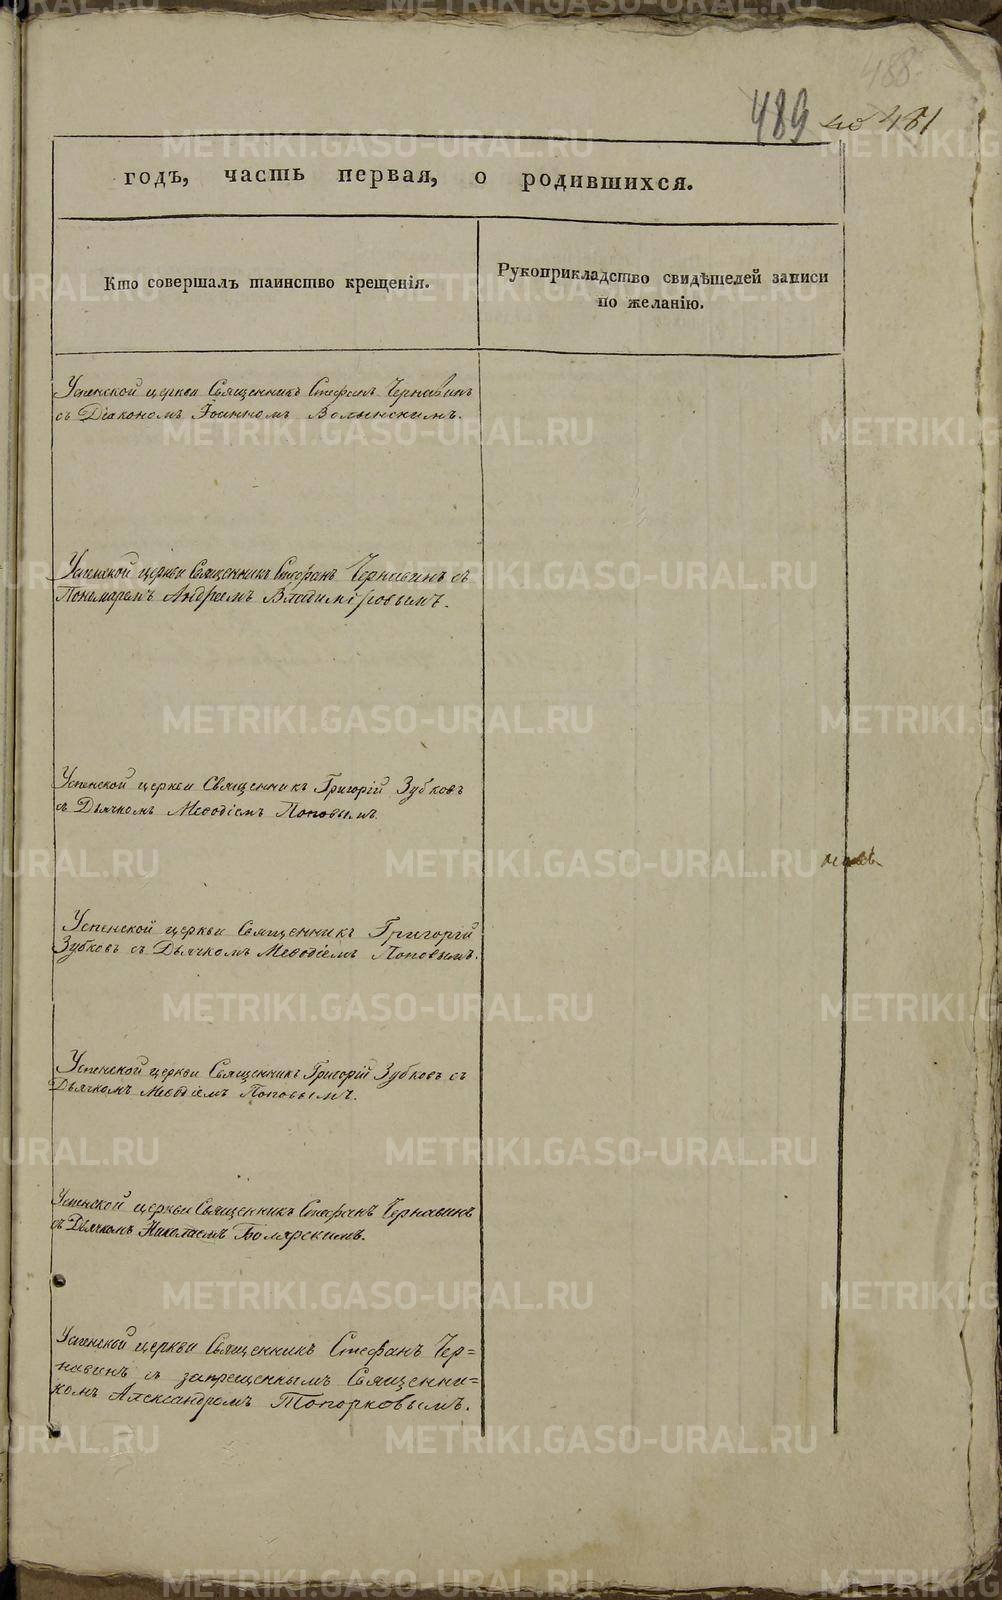 488
489 по 481
годъ, часть первая, о родившихся.
Кто совершалъ таинство крещенія.
Рукоприкладство свидѣтелей записи
по желанію.
Успенской церкви Священникъ Стефанъ Чернавинъ
съ Діакономъ Іоанномъ Волынскимъ.
Успенской церкви Священникъ Стефанъ Чернавинъ съ
Пономаремъ Андреемъ Владиміровымъ.
Успенской церкви Священникъ Григорій Зубковъ
съ Дьячкомъ Меѳодіемъ Поповымъ.
Успенской церкви Священникъ Григорій
Зубковъ съ Дьячкомъ Меѳодіемъ Поповымъ.
Успенской церкви Священникъ Григорій Зубковъ съ
Дьячкомъ Меѳодіемъ Поповымъ.
Успенской церкви Священникъ Стефанъ Чернавинъ
съ Дьячкомъ Николаемъ Боляр­скимъ.
Успенской церкви Священникъ Стефанъ Чер=
навинъ съ запрещеннымъ Священни=
комъ Александромъ Топорковымъ.
METRIKI.GASO-URAL.RU